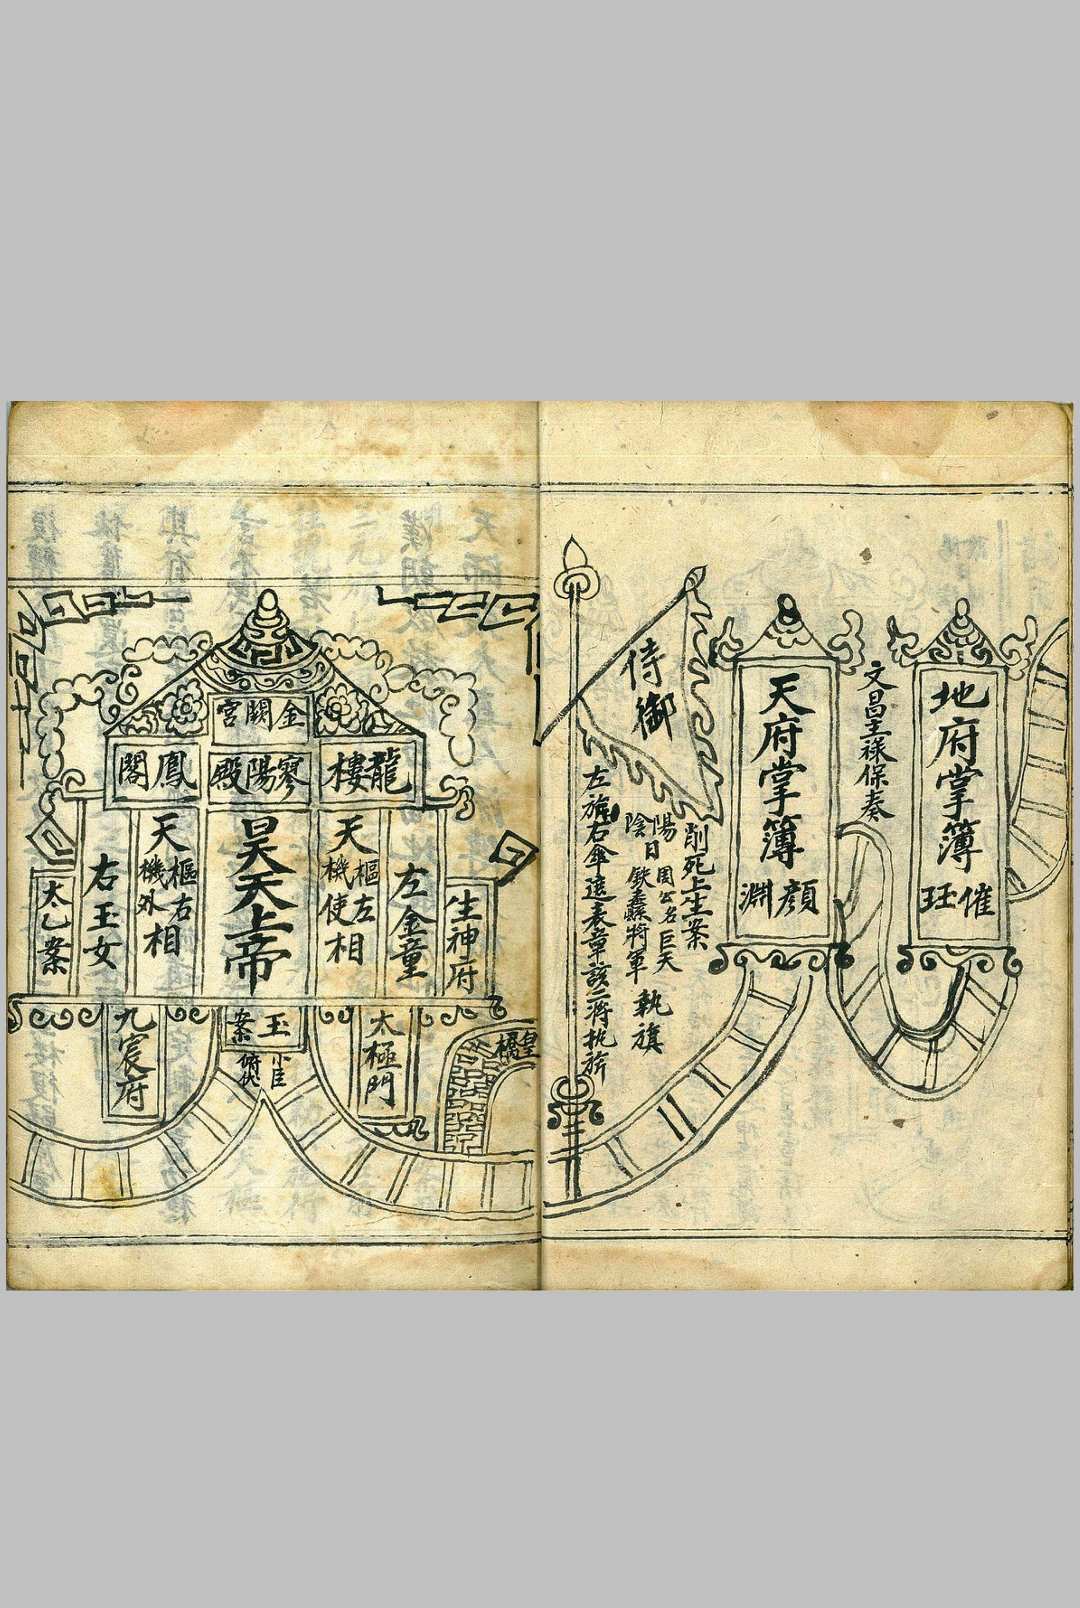 地府掌簿
催珏
文昌主祿保奏
天府掌簿
顏淵
削死上生案
陽
周公名巨天
陰日
鉄蠡將軍
執旗
侍御
左旗右傘遠表章該二將执
生神府
左金童
天樞左
機使相
金闕宮
龍樓
寥陽殿
鳳閣
昊天上帝
天樞右
機外相
右玉女
太乙案
皇橋
太極門
玉案
小臣
俯伏
九宸府